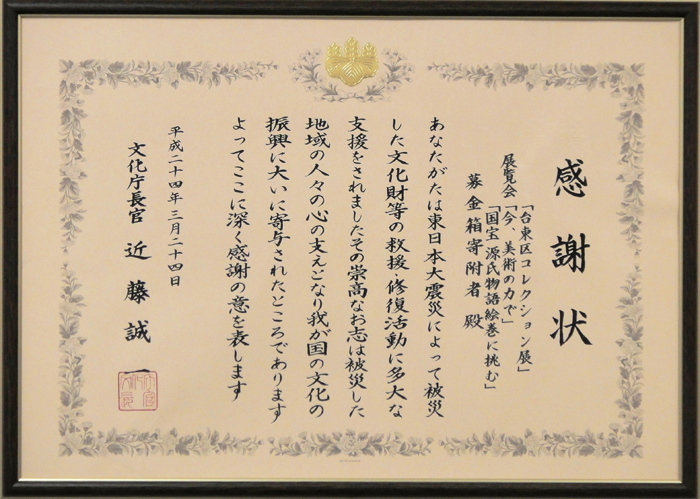 感謝状
「台東区コレクション展」
展覧会「今、美術の力で」
「国宝 源氏物語絵巻に挑む」
募金箱寄附者 殿
あなたがたは東日本大震災によって被災
した文化財等の救援・修復活動に多大な
支援をされましたその崇高なお志は被災した
地域の人々の心の支えとなり我が国の文化の
振興に大いに寄与されたところであります
よってここに深く感謝の意を表します
平成二十四年三月二十四日
文化庁長官 近藤誠一